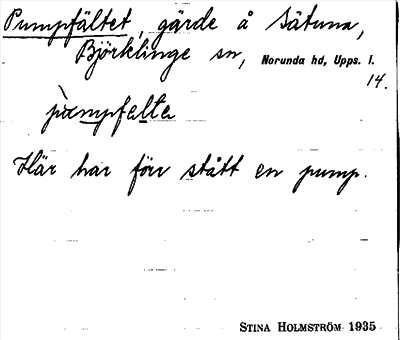 Pumpfältet, gärde å Sätuna,
Björklinge sn, Norunda hd, Upps. l.
14.
pùmpfelta
Här har förr stått en pump.
STINA HOLMSTRÖM 1935